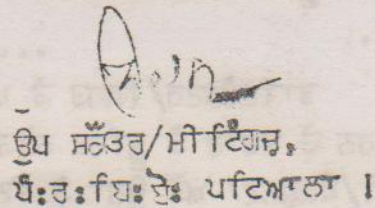 ਉਪ ਸਕੱਤਰ/ਮੀਟਿੰਗਜ਼,
ਪੰ:ਰ:ਬਿ:ਬੋ: ਪਟਿਆਲਾ ।